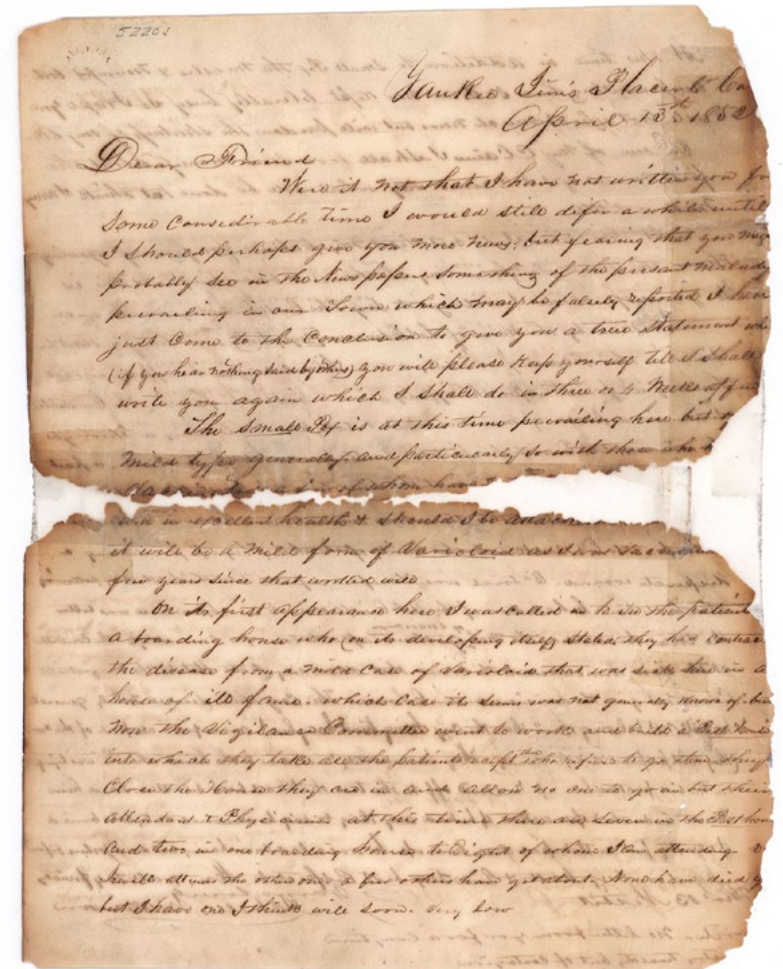 52201
Yankee Jim's Placer Co Ca
April 13th 1852
Dear Friend
Were it not that I have not written you for
some considerable time I would still defer a while until
I should perhaps give you more news; but fearing that you may
probably see in the News papers something of the present malady
prevailing in our Town which may be falsely reported I have
just come to the conclusion to give you a true statement
(if you hear nothing said by others) you will please keep yourself till I shall
write you again which I shall do in three or 4 weeks
The Small Pox is at this time prevailing here but of
mild type generally and particularly so with those who
of whom have
in excellent health & should I be
it will be a mild form of Varioloid as I was
few years since that worked well
On its first appearance here I was called in to see the patient
a boarding house who on its developing itself stated they had
the disease from a mild case of varioloid that was here in a
house of ill fame. which case it seems was not generally known of
Now the Vigilance Committee went to work and built a Pest
into which they take all the patients who refuse to go then they
Close the House they are in and allow no one to go in but their
attendant & Physician, at this time there are seven in the Pest
And two in one boarding House of whom I am attending
the other a few others have got about. None have died
but I have one I think will soon. very low